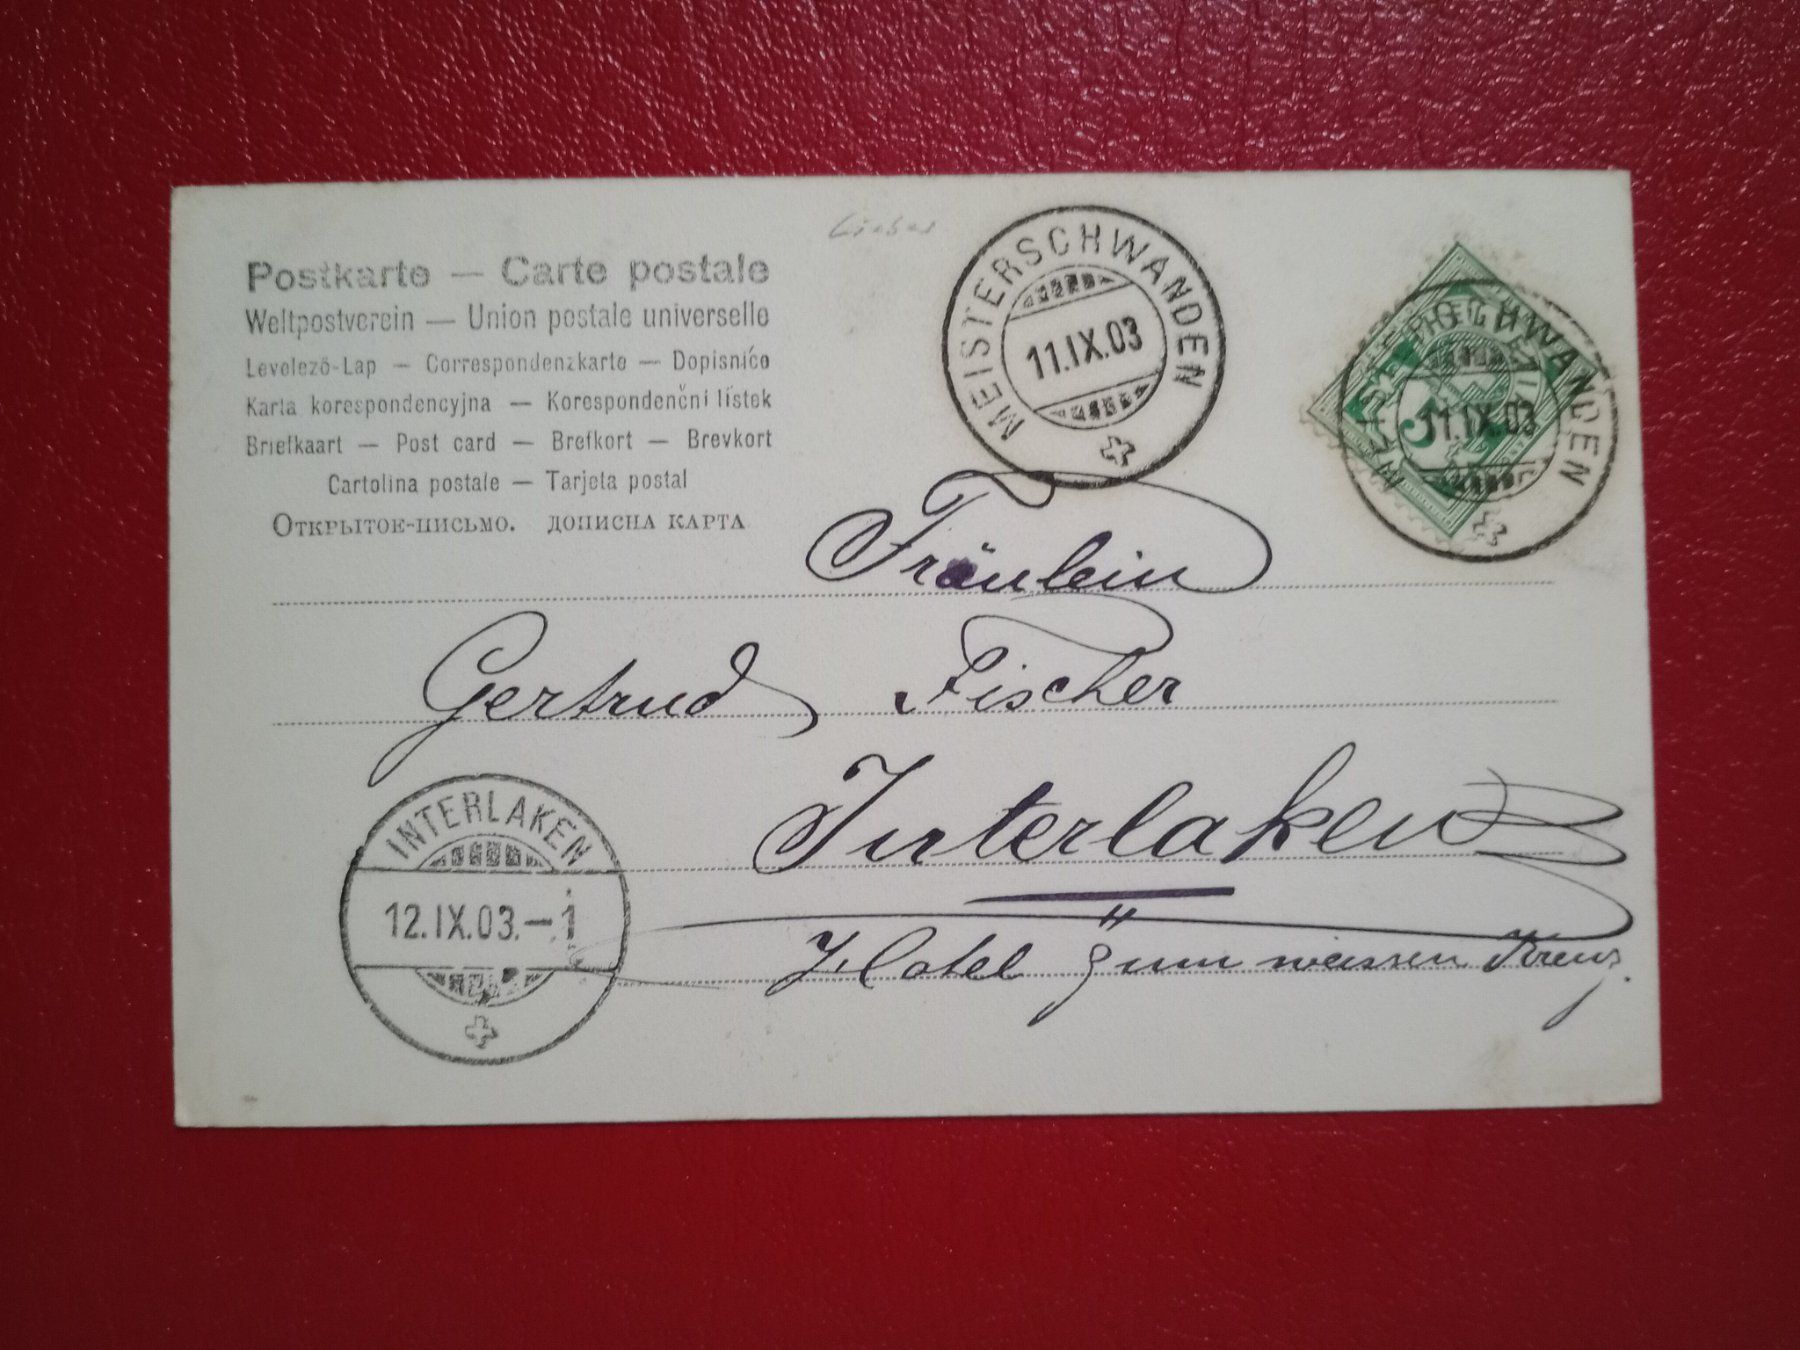 Postkarte — Carte postale
Weltpostverein — Union postale universelle
Levelező-Lap — Correspondenzkarte — Dopisnice
Karta korespondencyjna — Korespondenční lístek
Briefkaart — Post card — Brefkort — Brevkort
Cartolina postale — Tarjeta postal
Открытое-письмо. дописна карта
MEISTERSCHWANDEN
11.IX.03
MEISTERSCHWANDEN
11.IX.03
5
Fräulein
Gertrud Fischer
Interlaken
Hotel zum weissen Kreuz.
INTERLAKEN
12.IX.03.-1